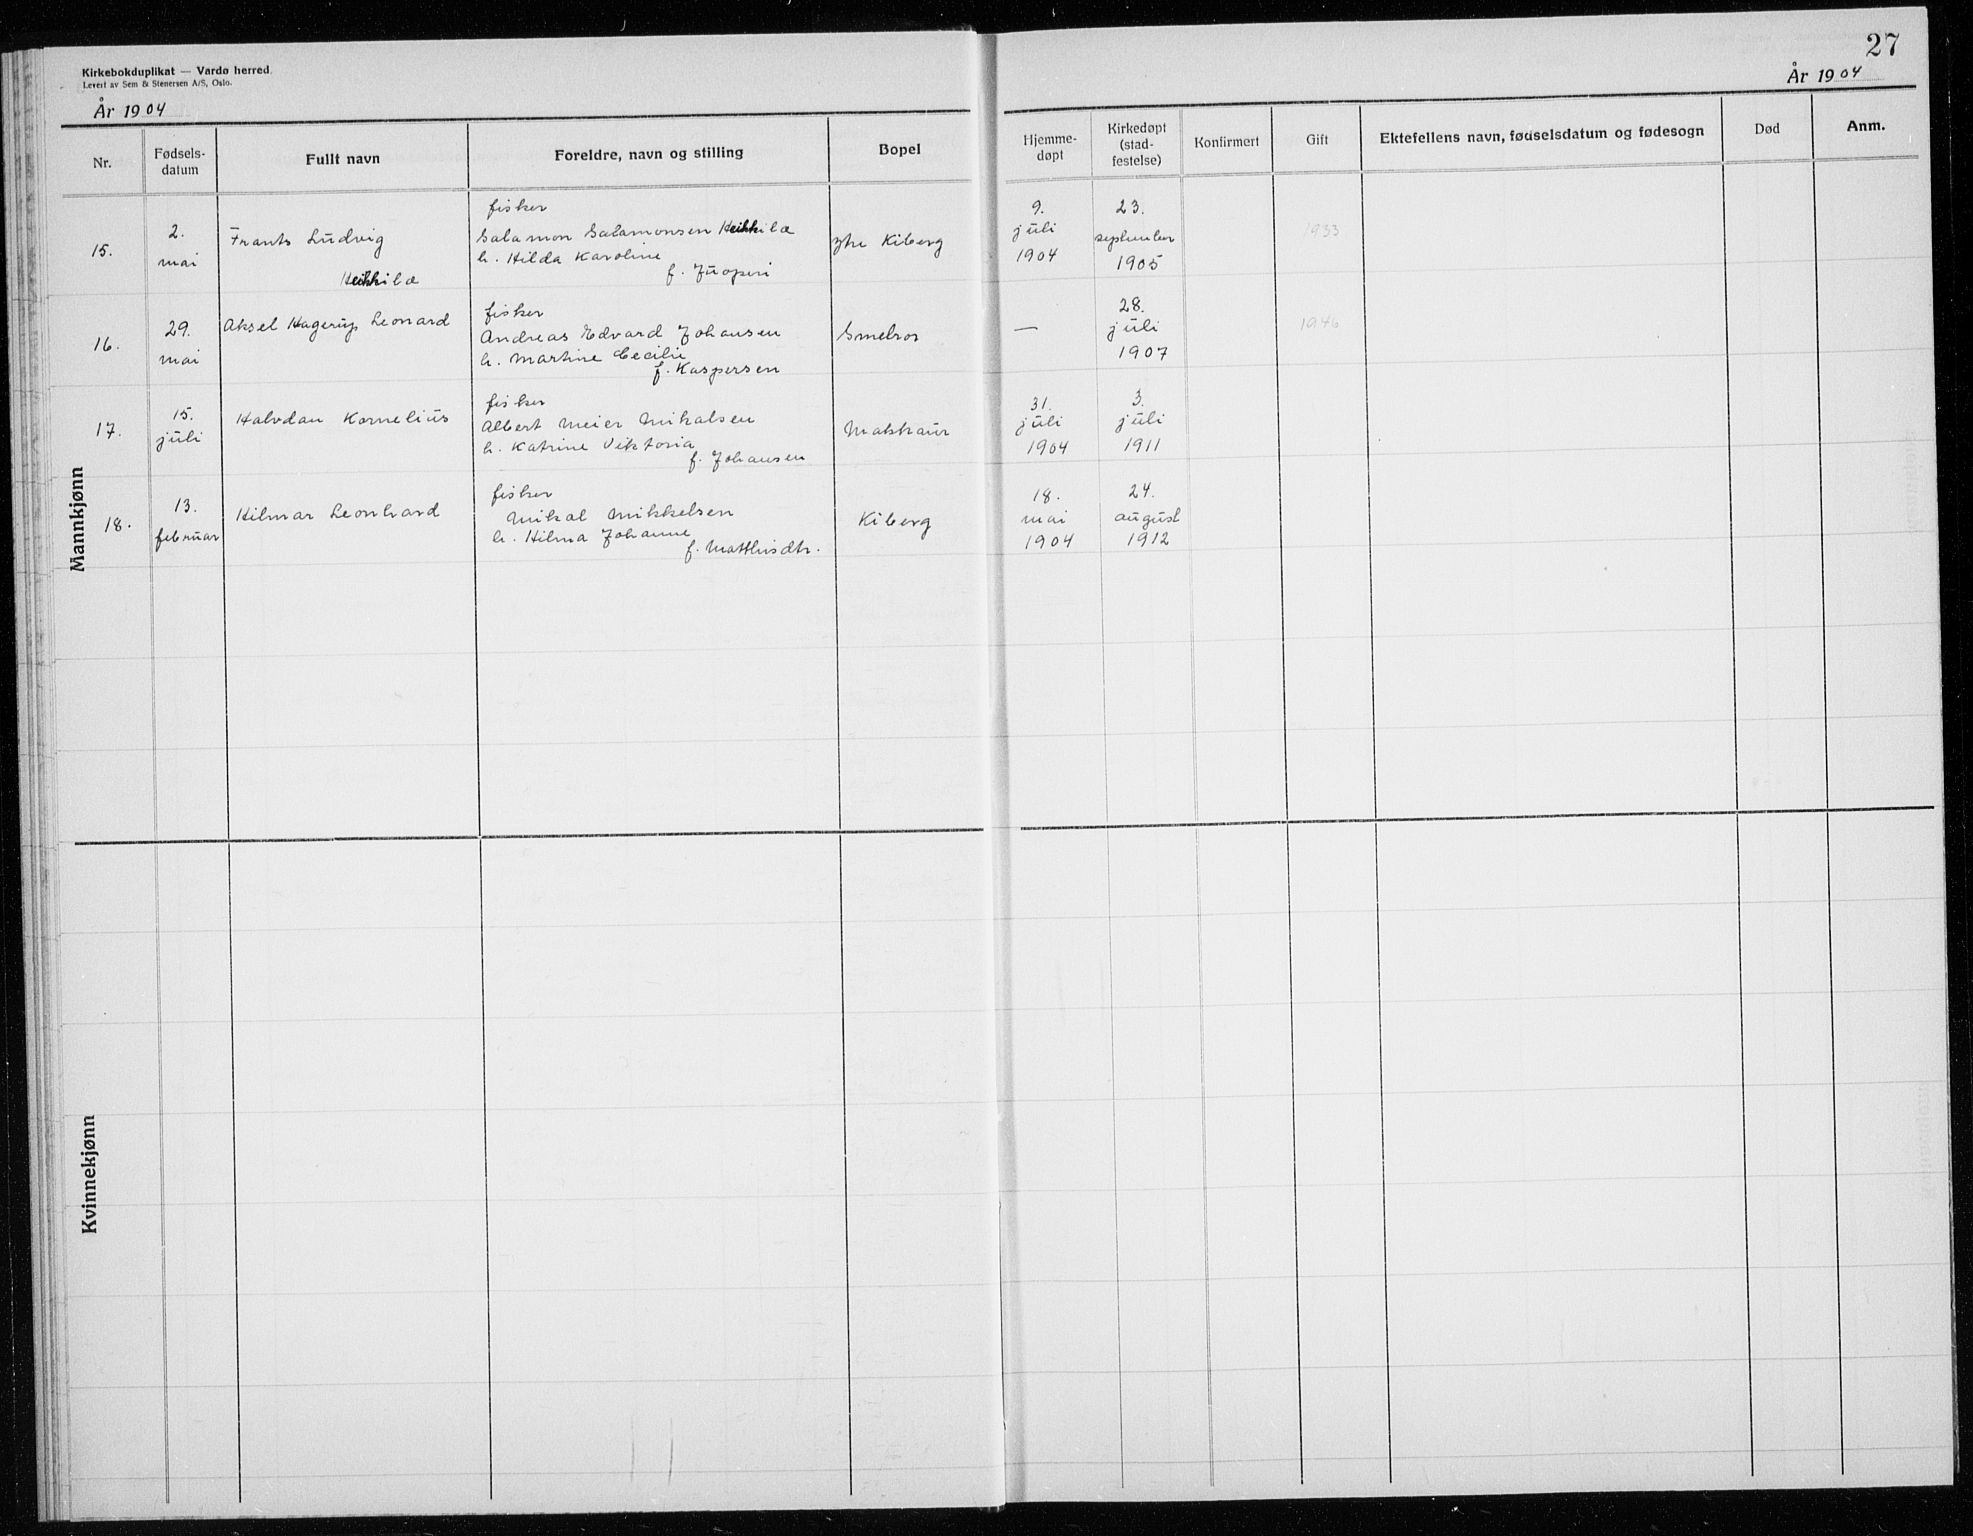 Kirkebokduplikat — Vardø herred.
Levert av Sem & Stenersen A/S, Oslo.
År 1904
27
År 1904
Nr. Fødsels-datum Fullt navn Foreldre, navn og stilling Bopel Hjemme-døpt Kirkedøpt (stad-festelse) Konfirmert Gift Ektefellens navn, fødselsdatum og fødesogn Død Anm.
Mannkjønn
fisker 9. 23.
15. 2. Frants Ludvig Salamon Salamonsen Heikkilæ Kiberg juli september 1933
mai h. Hilda Karoline 1904 1905
Heikkilæ f. Juoperi
fisker 28.
16. 29. Aksel Hagerup Leonard Andreas Edvard Johansen Smelror — juli 1946
mai h. Martine Cecilie 1907
f. Kaspersen
fisker 31. 3.
17. 15. Halvdan Kornelius Albert Meier Mikalsen Makkaur juli juli
juli h. Katrine Viktoria 1904 1911
f. Johansen
fisker 18. 24.
18. 13. Hilmar Leonhard Mikal Mikkelsen Kiberg mai august
februar h. Hilma Johanne 1904 1912
f. Matthisdtr.
Kvinnekjønn